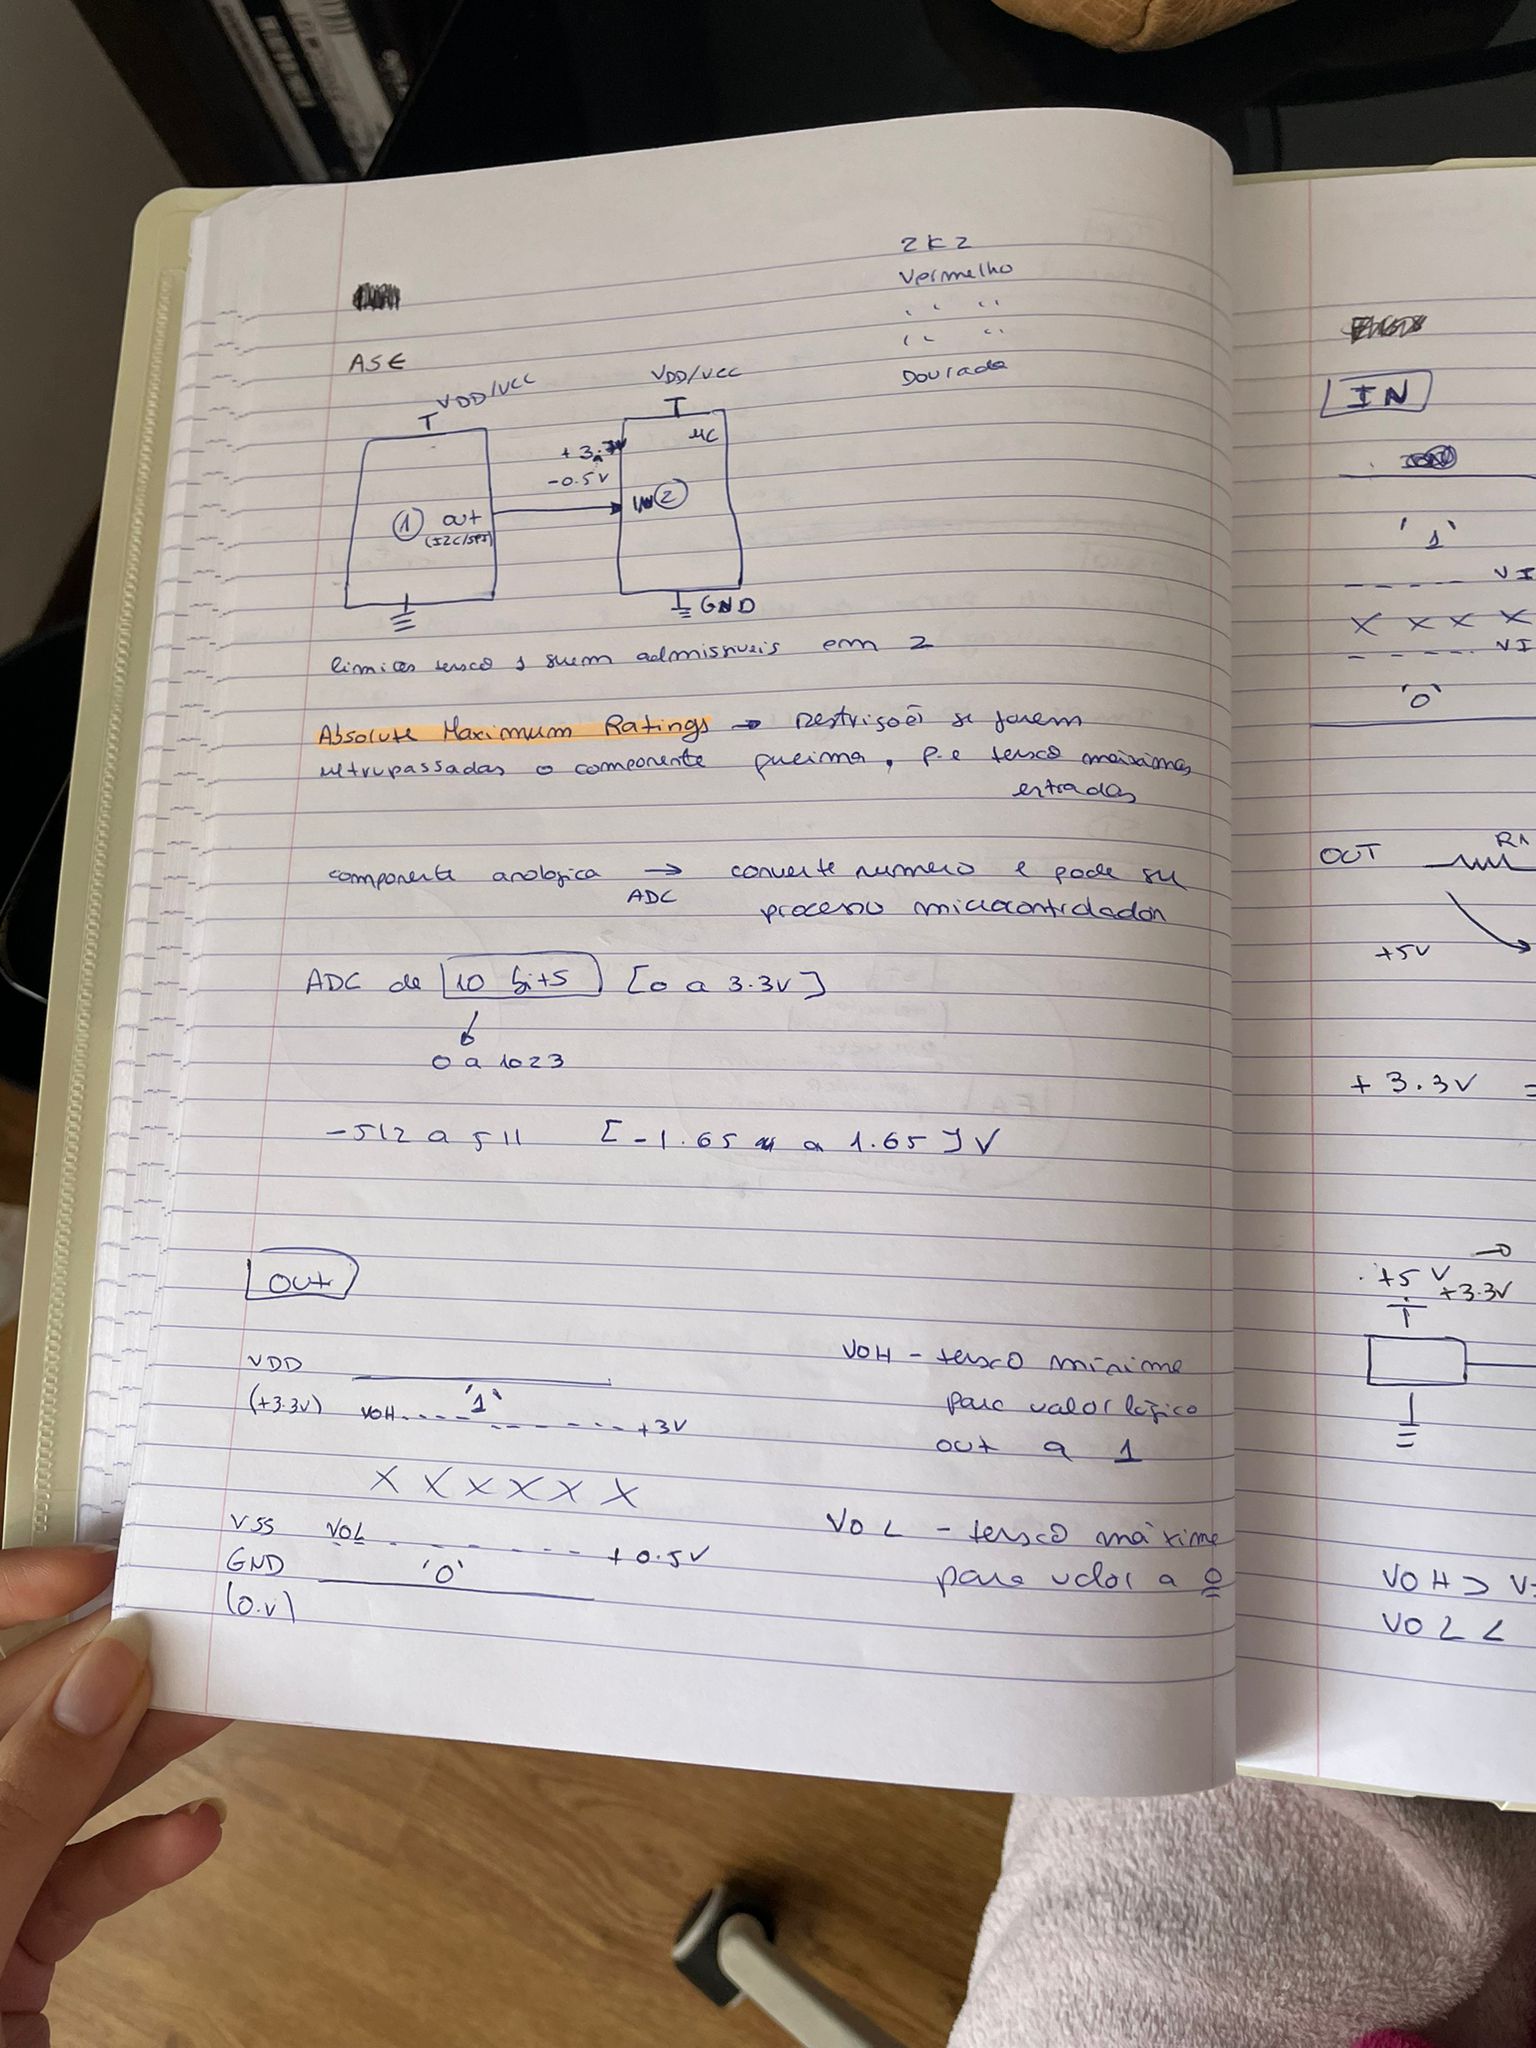 2K2
Vermelho
" "
" "
Dourado
ASE
VDD/VCC
VDD/VCC
+3.
-0.5V
μC
1 out
(I2C/SPI)
IN 2
GND
limites tensão 1 serem admissíveis em 2
Absolute Maximum Ratings → restrisões se forem
ultrapassadas o componente queima, p.e tensão máximas
entradas
componente analogica → converte numero e pode ser
ADC
processo microcontrolador
ADC de 10 bits [0 a 3.3V]
0 a 1023
-512 a 511 [-1.65 a 1.65] V
out
VDD
(+3.3V)
'1'
VOH +3V
X X X X X X
VSS
GND
(0.V)
VOL +0.5V
'0'
VOH - tensão mínima
para valor lógico
out a 1
VOL - tensão máxima
para valor a 0
IN
'1'
VI
X X X X
VI
'0'
OUT
+5V
+3.3V =
+5V
+3.3V
VOH >
VOL <